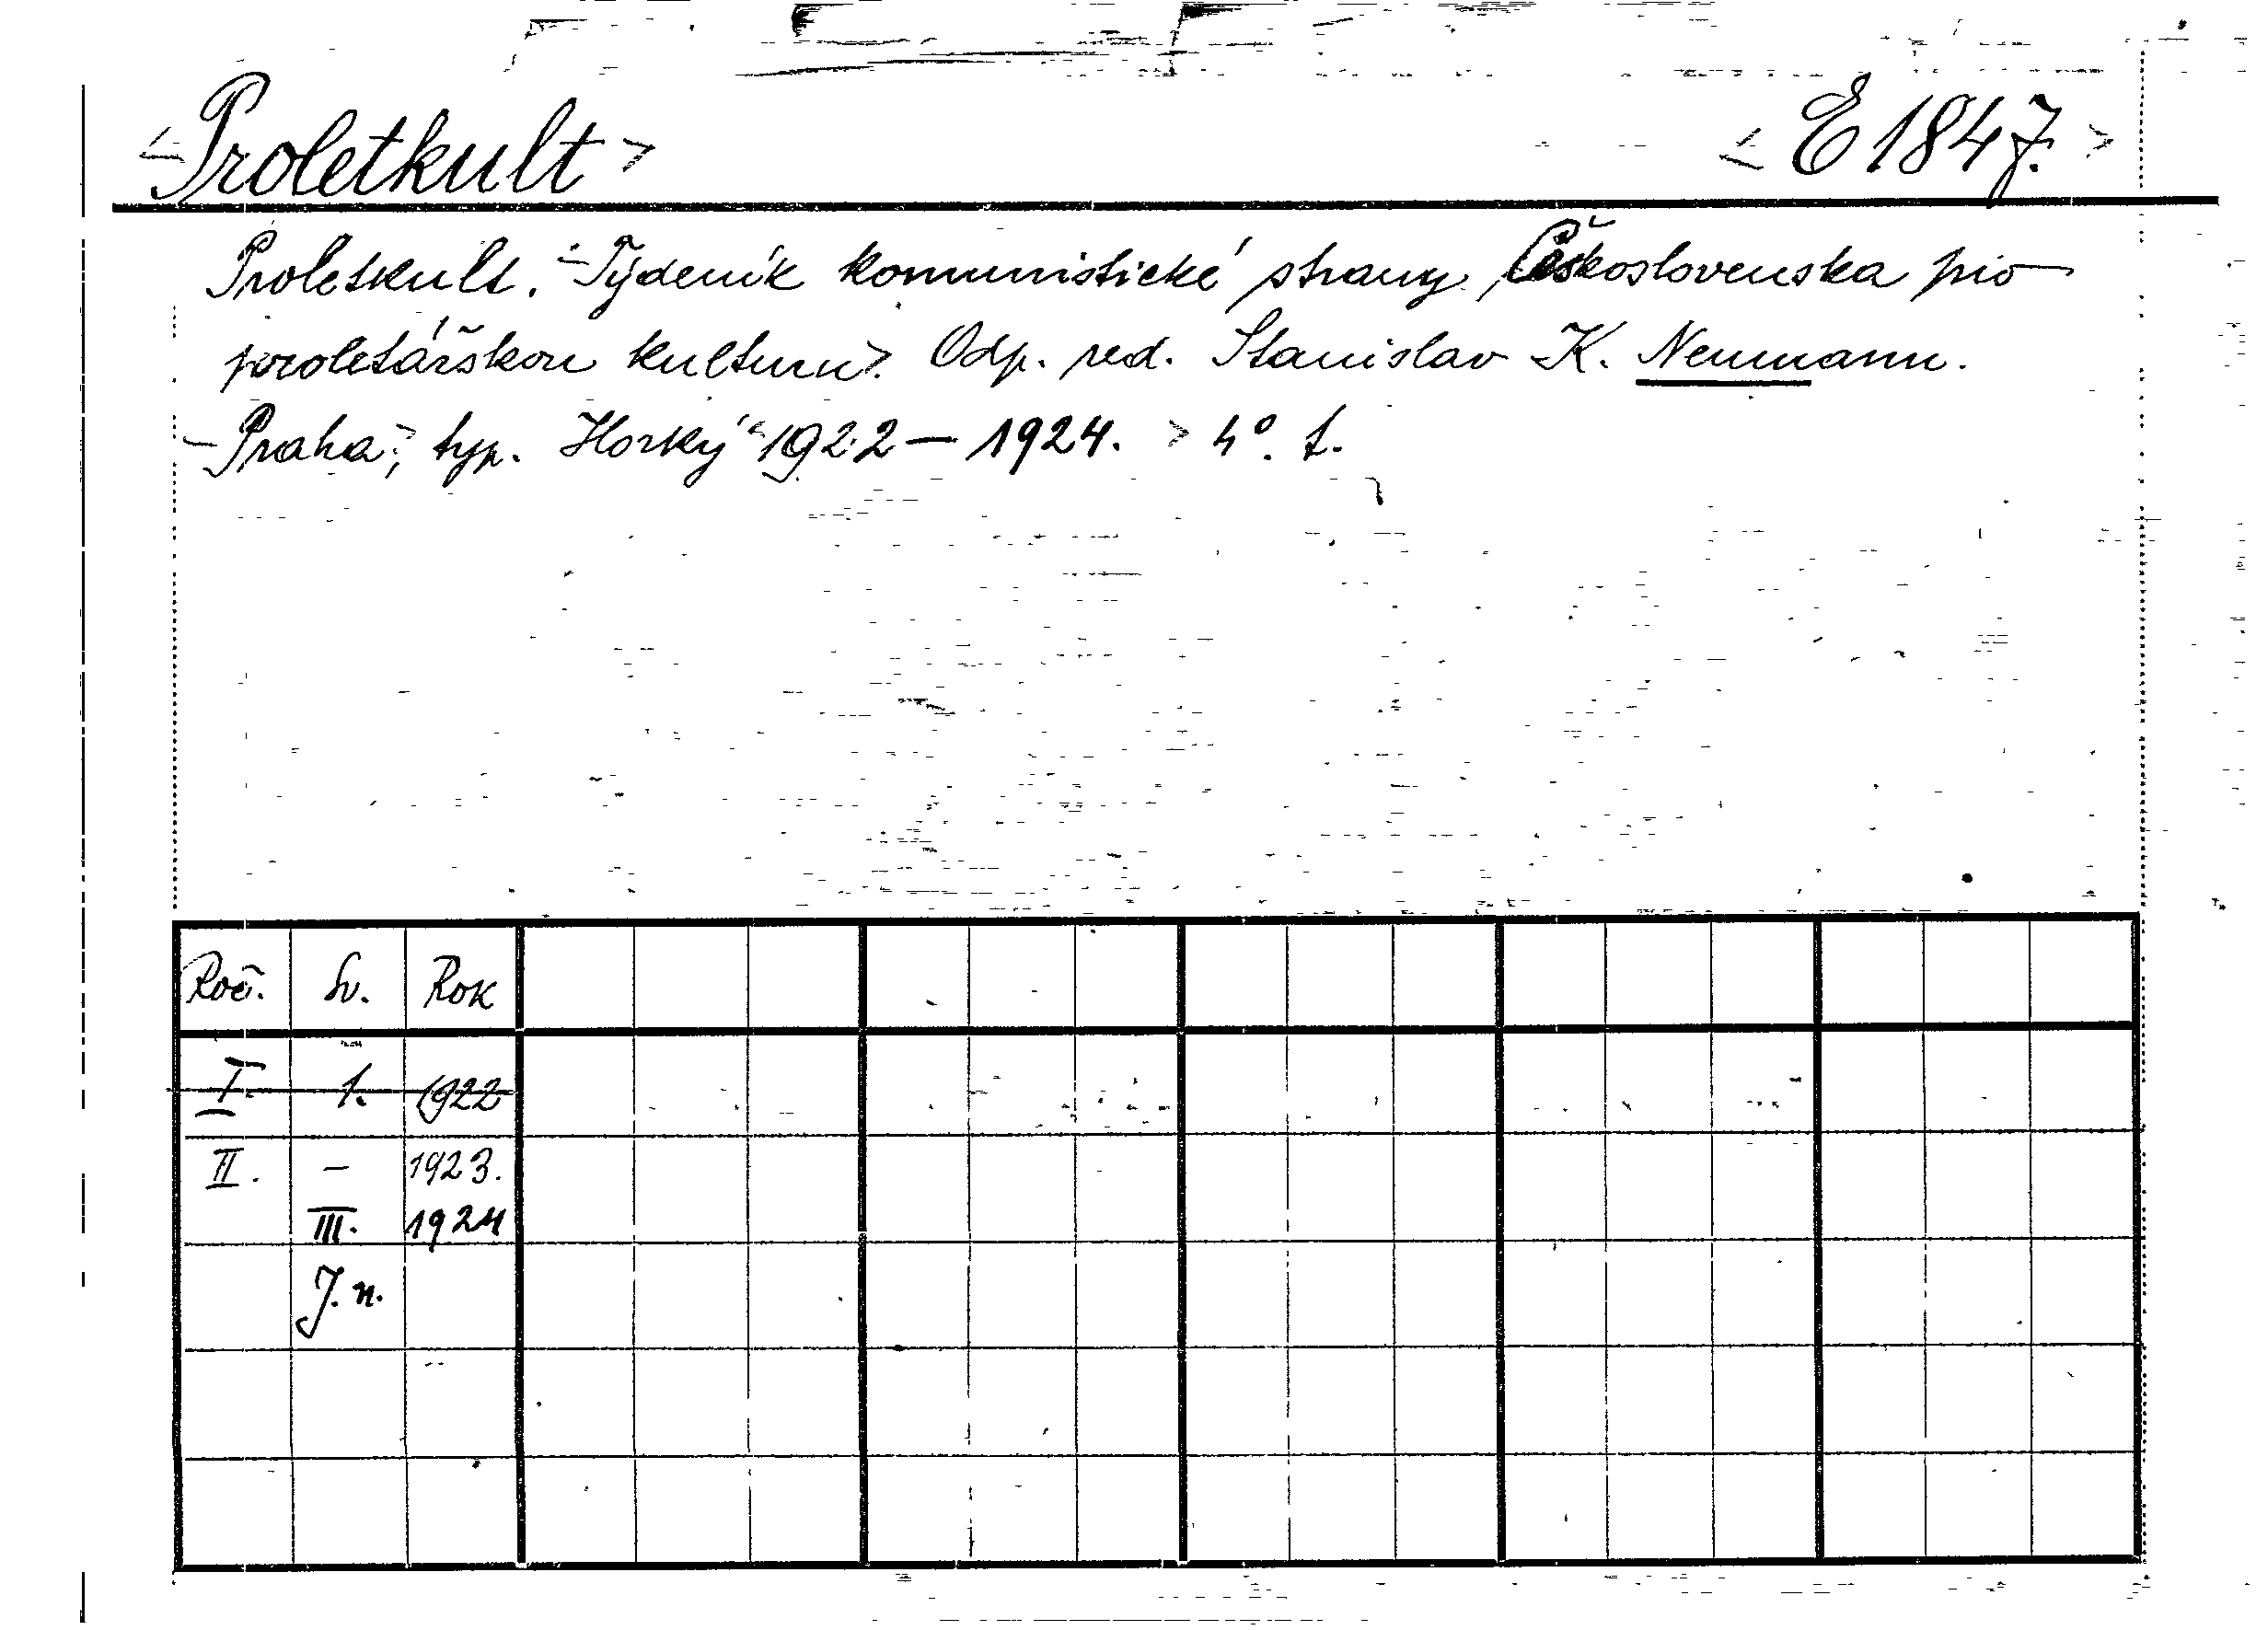 <Proletkult> <E 1847.>
Proletkult. <Týdeník komunistické strany Československa pro
proletářskou kulturu>. Odp. red. Stanislav K. Neumann.
<Praha>, typ. Horký <1922 — 1924. > 4°. f.
Roč. Sv. Rok
I. 1. 1922
II. — 1923.
III. 1924
J. n.